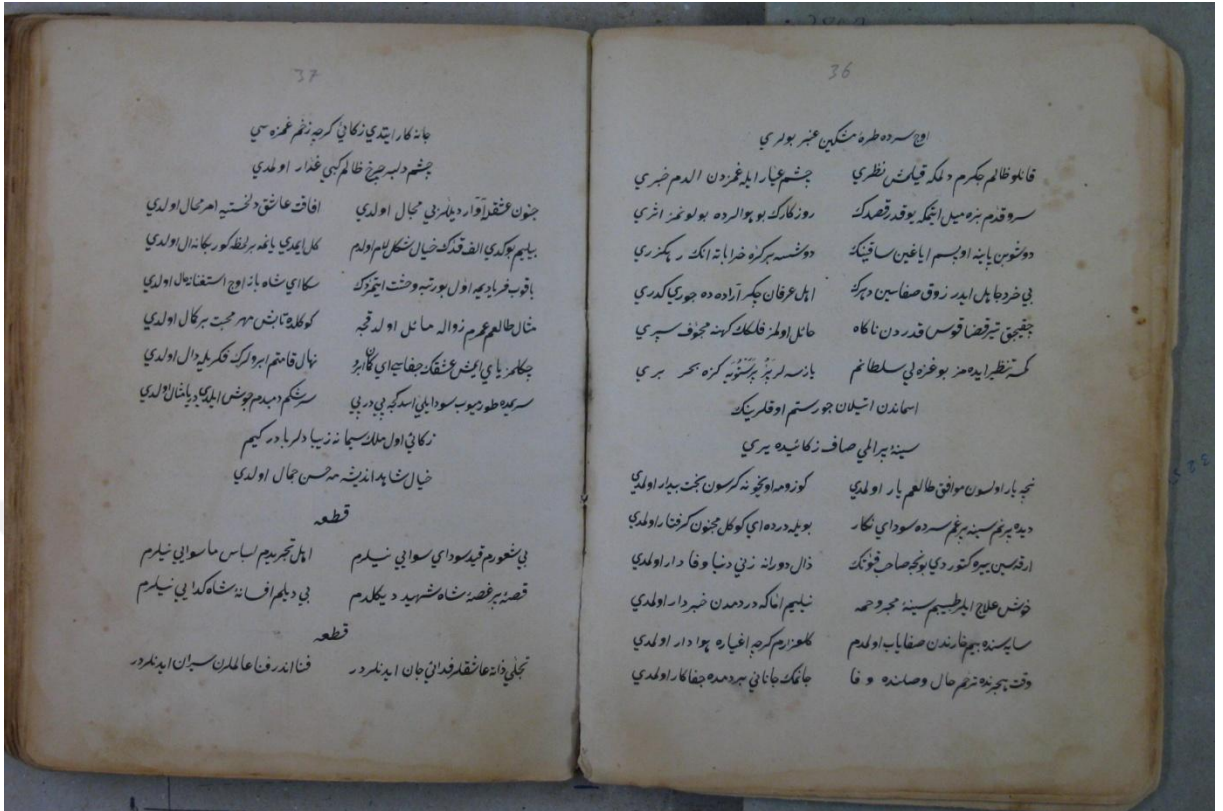 36
اوج سرده طرهٔ مشكين عنبر بولري
قانلو ظالم جكرم دلمكه قيلمش نظري چشم عيار ايله غمزدن الدم خبري
سرو قدم بزه ميل ايتمكه يوقدر قصدك روزكارك بو هوالرده بولونمز اثري
دوشوبن پاينه اوپسم اياغين ساقينك دوشسه بر كره خراباته انك رهكزري
بي خرد جاهل ايدر ذوق صفاسين دهرك اهل عرفان چكر آراده ده جوري كدري
چيقيجق تير قضا قوس قدردن ناكاه حائل اولمز فلكك كهنه مجوف سپري
كمسه تنظير ايده مز بو غزلي سلطانم يازسه لر كزه بحر بري
اسماندن اتيلان جور ستم اوقلرينك
سينهٔ پر المي صاف زكائيده يري
نجه يار اولسون موافق طالعم يار اولمدي كوزومه اويخو نه كرسون بخت بيدار اولمدي
ديده پر نم سينه پر غم سرده سوداي نكار بويله درده اي كوكل مجنون كرفتار اولمدي
ارقه سين يره كتوردي بونجه صاحب قوتك زال دورانه زني دنيا وفادار اولمدي
خوش علاج ايلر طبيبم سينهٔ مجروحمه نيليم اما كه دردمدن خبردار اولمدي
سايه سنده بيم خارندن صفاياب اولمدم كلعذارم كرچه اغياره هوادار اولمدي
وقت هجرنده ترحم حال وصلنده وفا جانمك جاناني هر دمده جفاكار اولمدي
37
جانه كار ايتدي زكائي كرچه زخم غمزه سي
چشم دلبر چرخ ظالم كبي غدار اولمدي
جنون عشقله ديللر بي مجال اولدي افاقت عاشق دلخسته يه امر محال اولدي
بيليم بولدي الف قدك خيال شكل لام اولدم كل ايمدي يانمه بر لحظه كور بكا نه ال اولدي
باقوب فرياديمه اول بو رتبه وحشت ايتمزدك سكا اي شاهباز اوج استغنا نه حال اولدي
مثال طالعم عمرم زواله مائل اولدقجه كوكلده تابش مهر محبت بر كمال اولدي
چكلمز ياي ايمش عشقك جفاسي اي كمان ابرو نهال قامتم ابرولرك فكريله دال اولدي
سريمده طورميوب سودا يلي اسدكجه پي درپي سرشكم دمبدم جوش ايلدي دريا مثال اولدي
زكائي اول ملك سيما نه زيبا دلربادر كيم
خيال شاهد انديشه مه حسن جمال اولدي
قطعه
بي شعورم قيد سوداي سوايي نيلرم اهل تجريدم لباس ماسوايي نيلرم
قصهٔ پر غصهٔ شاه شهيد ديكلدم بي ديلم افسانهٔ شاه كدايي نيلرم
قطعه
تجلي ذاته عاشقلر فدائي جان ايدنلردر فنا اندر فنا عالملرن سيران ايدنلردر